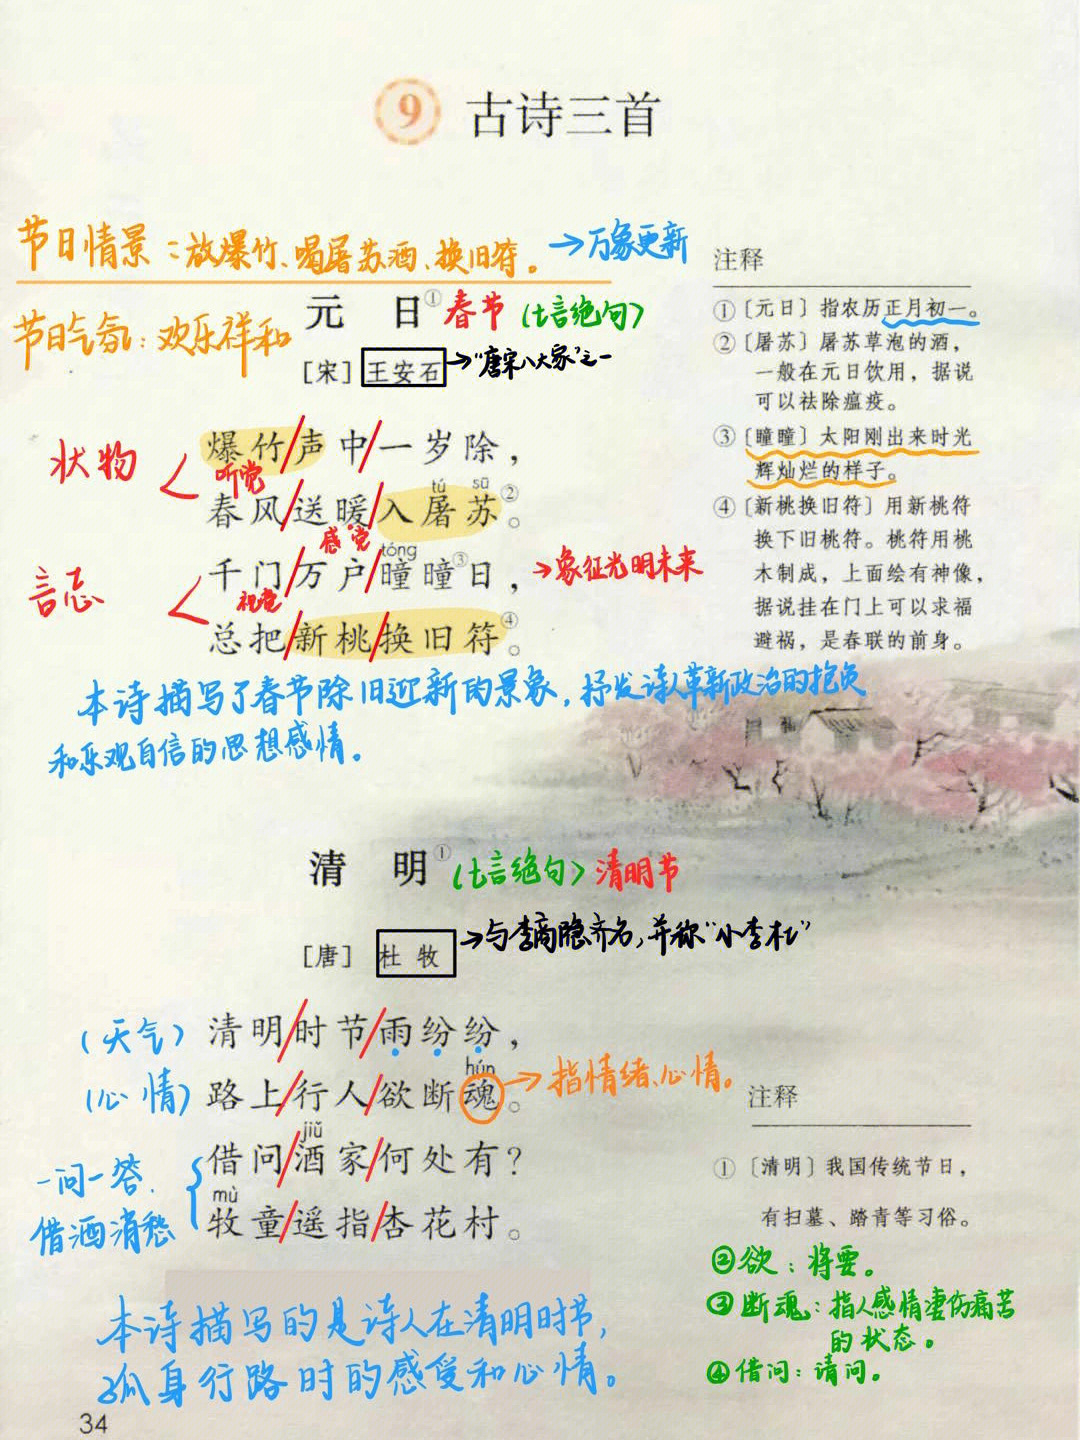 9 古诗三首
节日情景：放爆竹、喝屠苏酒、换旧符。→万象更新
节日气氛：欢乐祥和
元 日① 春节 (七言绝句)
[宋] 王安石 →"唐宋八大家"之一
状物
爆竹/声中/一岁除，
听觉
tú sū
春风/送暖/入屠苏②。
感觉
言志
tóng
千门/万户/曈曈③日， →象征光明未来
视觉
总把/新桃/换旧符④。
本诗描写了春节除旧迎新的景象，抒发诗人革新政治的抱负
和乐观自信的思想感情。
注释
①〔元日〕指农历正月初一。
②〔屠苏〕屠苏草泡的酒，
一般在元日饮用，据说
可以祛除瘟疫。
③〔曈曈〕太阳刚出来时光
辉灿烂的样子。
④〔新桃换旧符〕用新桃符
换下旧桃符。桃符用桃
木制成，上面绘有神像，
据说挂在门上可以求福
避祸，是春联的前身。
清 明① (七言绝句) 清明节
[唐] 杜 牧 →与李商隐齐名，并称"小李杜"
(天气) 清明/时节/雨纷纷，
hún
(心情) 路上/行人/欲断魂。 →指情绪、心情。
jiǔ
借问/酒家/何处有？
一问一答，
借酒消愁
mù
牧童/遥指/杏花村。
本诗描写的是诗人在清明时节，
孤身行路时的感受和心情。
注释
①〔清明〕我国传统节日，
有扫墓、踏青等习俗。
②欲：将要。
③断魂：指人感情凄伤痛苦
的状态。
④借问：请问。
34